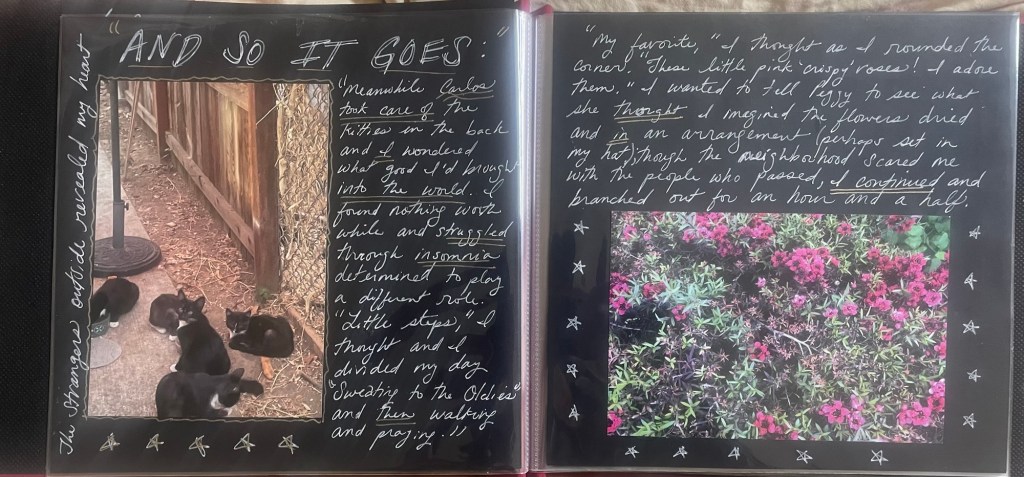 "AND SO IT GOES:"
The strangers outside revealed my heart
"Meanwhile Carlos
took care of the
kitties in the back
and I wondered
what good I'd brought
into the world. I
found nothing worth
while and struggled
through insomnia
determined to play
a different role.
"Little steps," I
thought and I
divided my day
"Sweating to the Oldies"
and then walking
and praying."
"My favorite," I thought as I rounded the
corner. These little pink 'crispy' roses! I adore
them." I wanted to tell Peggy to see what
she thought I imagined the flowers dried
and in an arrangement (perhaps set in
my hat), though the neighbourhood scared me
with the people who passed, I continued and
branched out for an hour and a half.